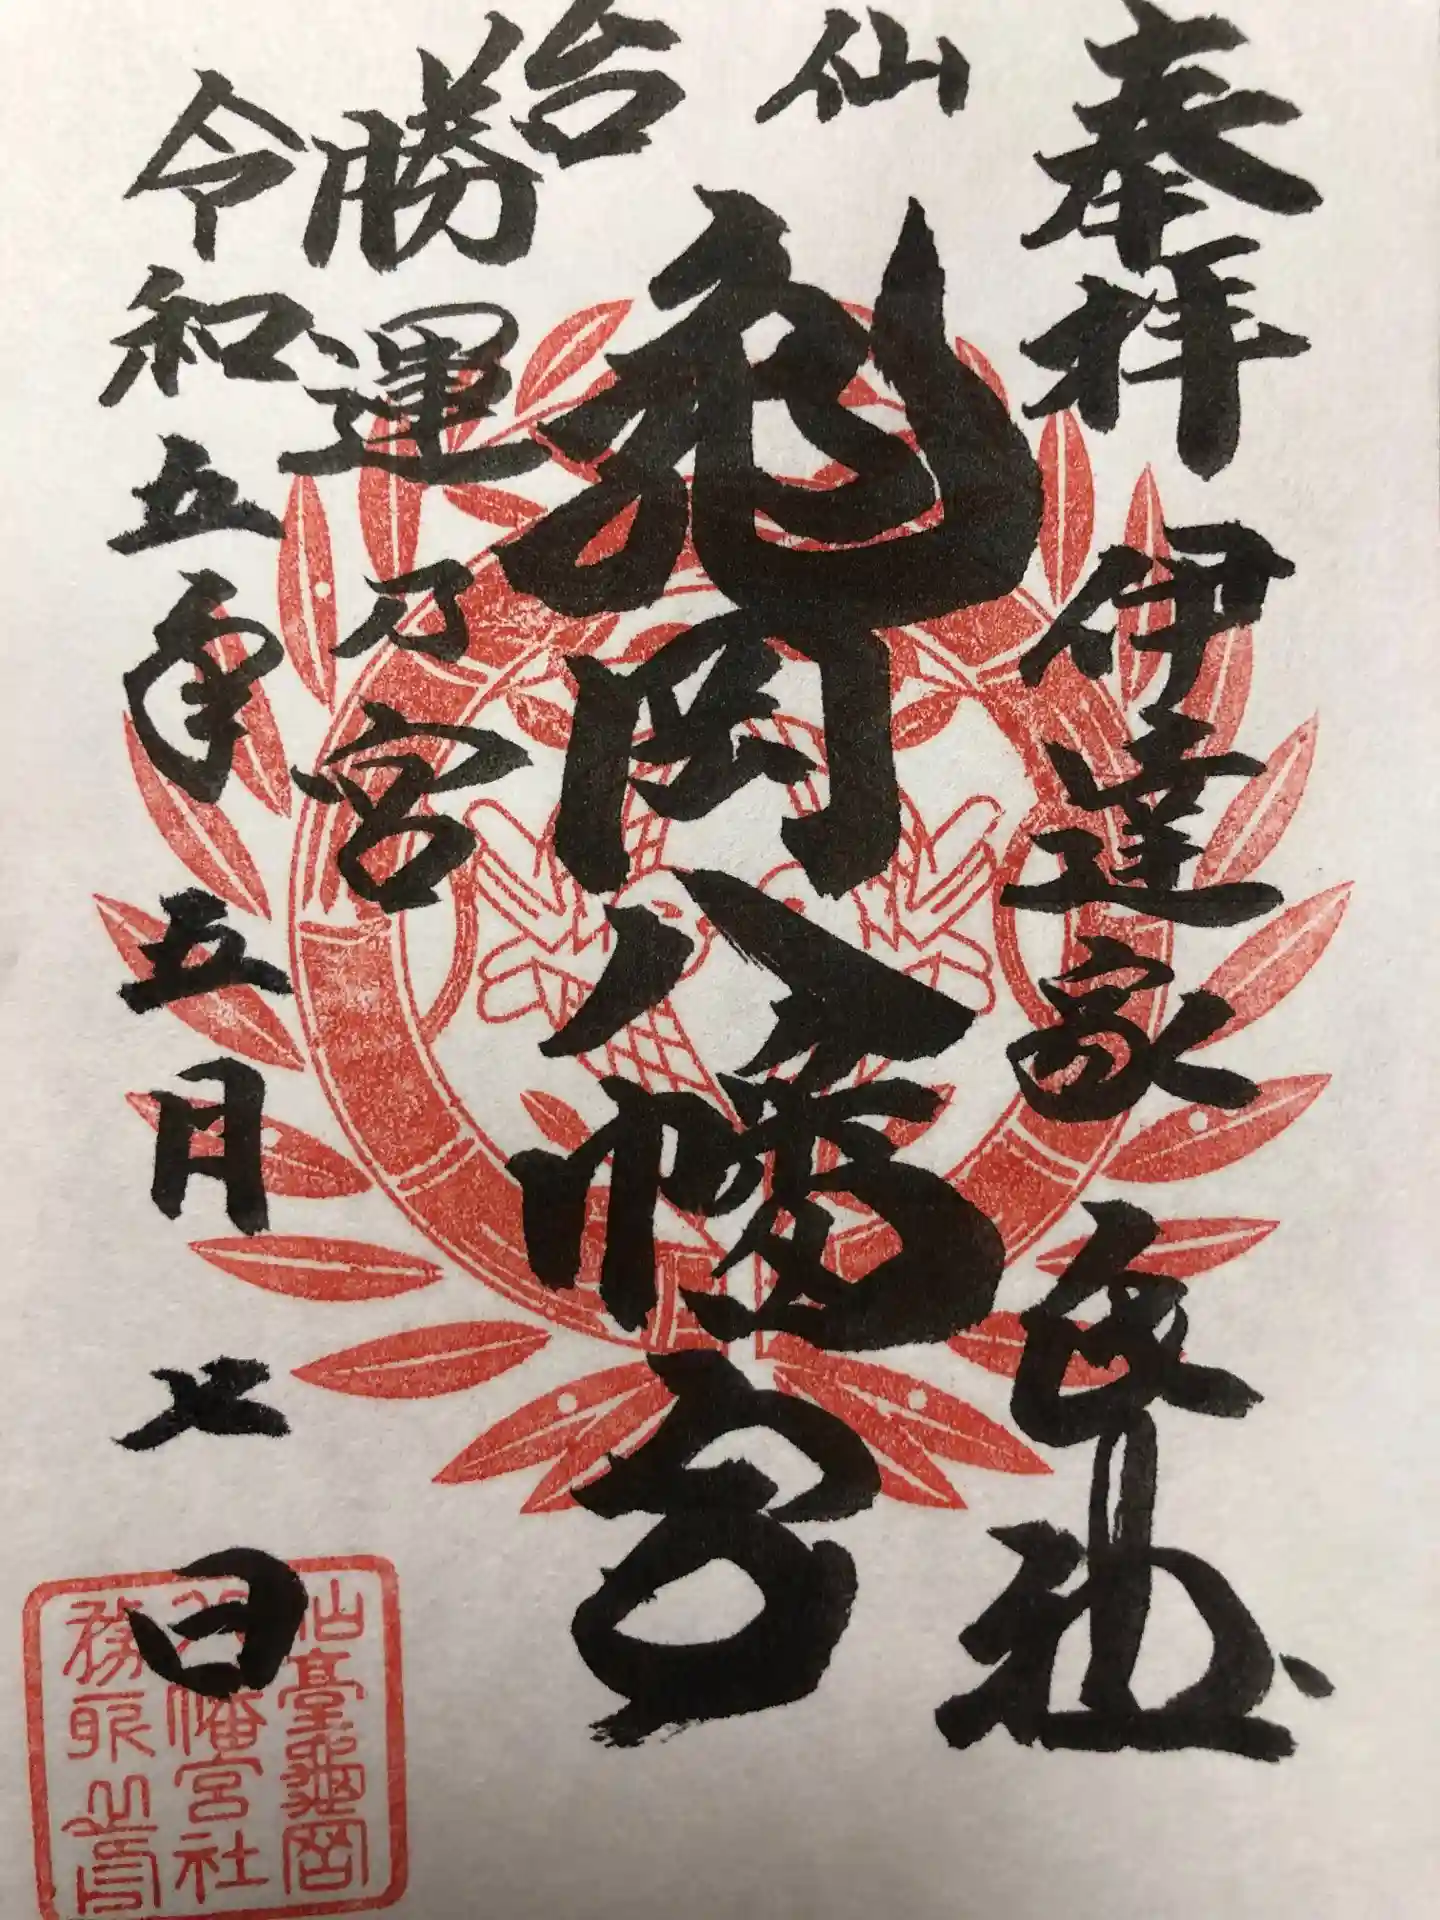 奉拝 伊達家氏社
仙台
亀岡八幡宮
勝運乃宮
令和五年五月七日
仙臺龜岡
八幡宮社
務所之印